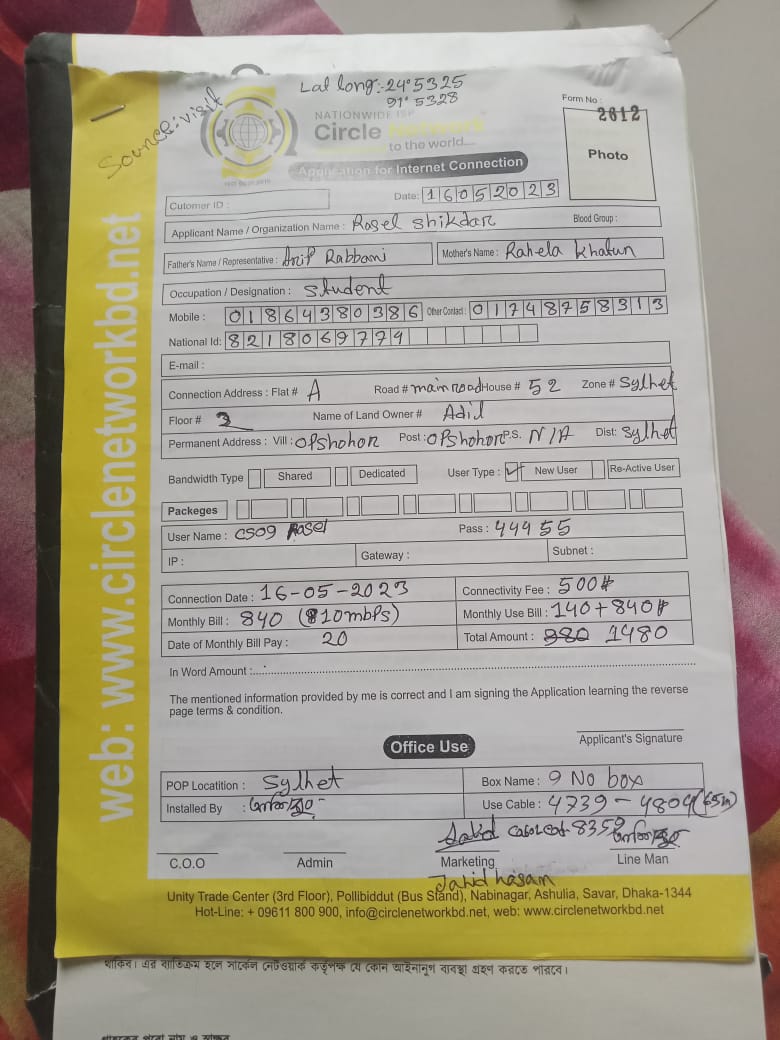 Lat long:-24°5325
91°5328
Source:visit
NATIONWIDE ISP
Circle Network
to the world....
Form No :
2612
Photo
Application for Internet Connection
Cutomer ID :
Date: 16052023
Applicant Name / Organization Name : Rosel Shikdar Blood Group :
Father's Name / Representative : Arif Rabbani Mother's Name : Rahela Khatun
Occupation / Designation : Student
Mobile : 01864380386 Other Contact : 01748758313
National Id: 8218069774
E-mail :
Connection Address : Flat # A Road # main road House # 52 Zone # Sylhet
Floor # 3 Name of Land Owner # Adil
Permanent Address : Vill : Opshohor Post : Opshohor P.S. N/A Dist: Sylhet
Bandwidth Type Shared Dedicated User Type : ✓ New User Re-Active User
Packeges
User Name : CS09 Rosel Pass : 44455
IP : Gateway : Subnet :
Connection Date : 16-05-2023 Connectivity Fee : 500
Monthly Bill : 840 (10mbps) Monthly Use Bill : 140+840
Date of Monthly Bill Pay : 20 Total Amount : 980 1480
In Word Amount :
The mentioned information provided by me is correct and I am signing the Application learning the reverse
page terms & condition.
Applicant's Signature
Office Use
POP Locatition : Sylhet Box Name : 9 No box
Installed By : Use Cable : 4739-4804(65m)
8359
C.O.O Admin Marketing Line Man
Jahid hasan
Unity Trade Center (3rd Floor), Pollibiddut (Bus Stand), Nabinagar, Ashulia, Savar, Dhaka-1344
Hot-Line: + 09611 800 900, info@circlenetworkbd.net, web: www.circlenetworkbd.net
web: www.circlenetworkbd.net
থাকিব। এর ব্যতিক্রম হলে সার্কেল নেটওয়ার্ক কর্তৃপক্ষ যে কোন আইনানুগ ব্যবস্থা গ্রহণ করতে পারবে।